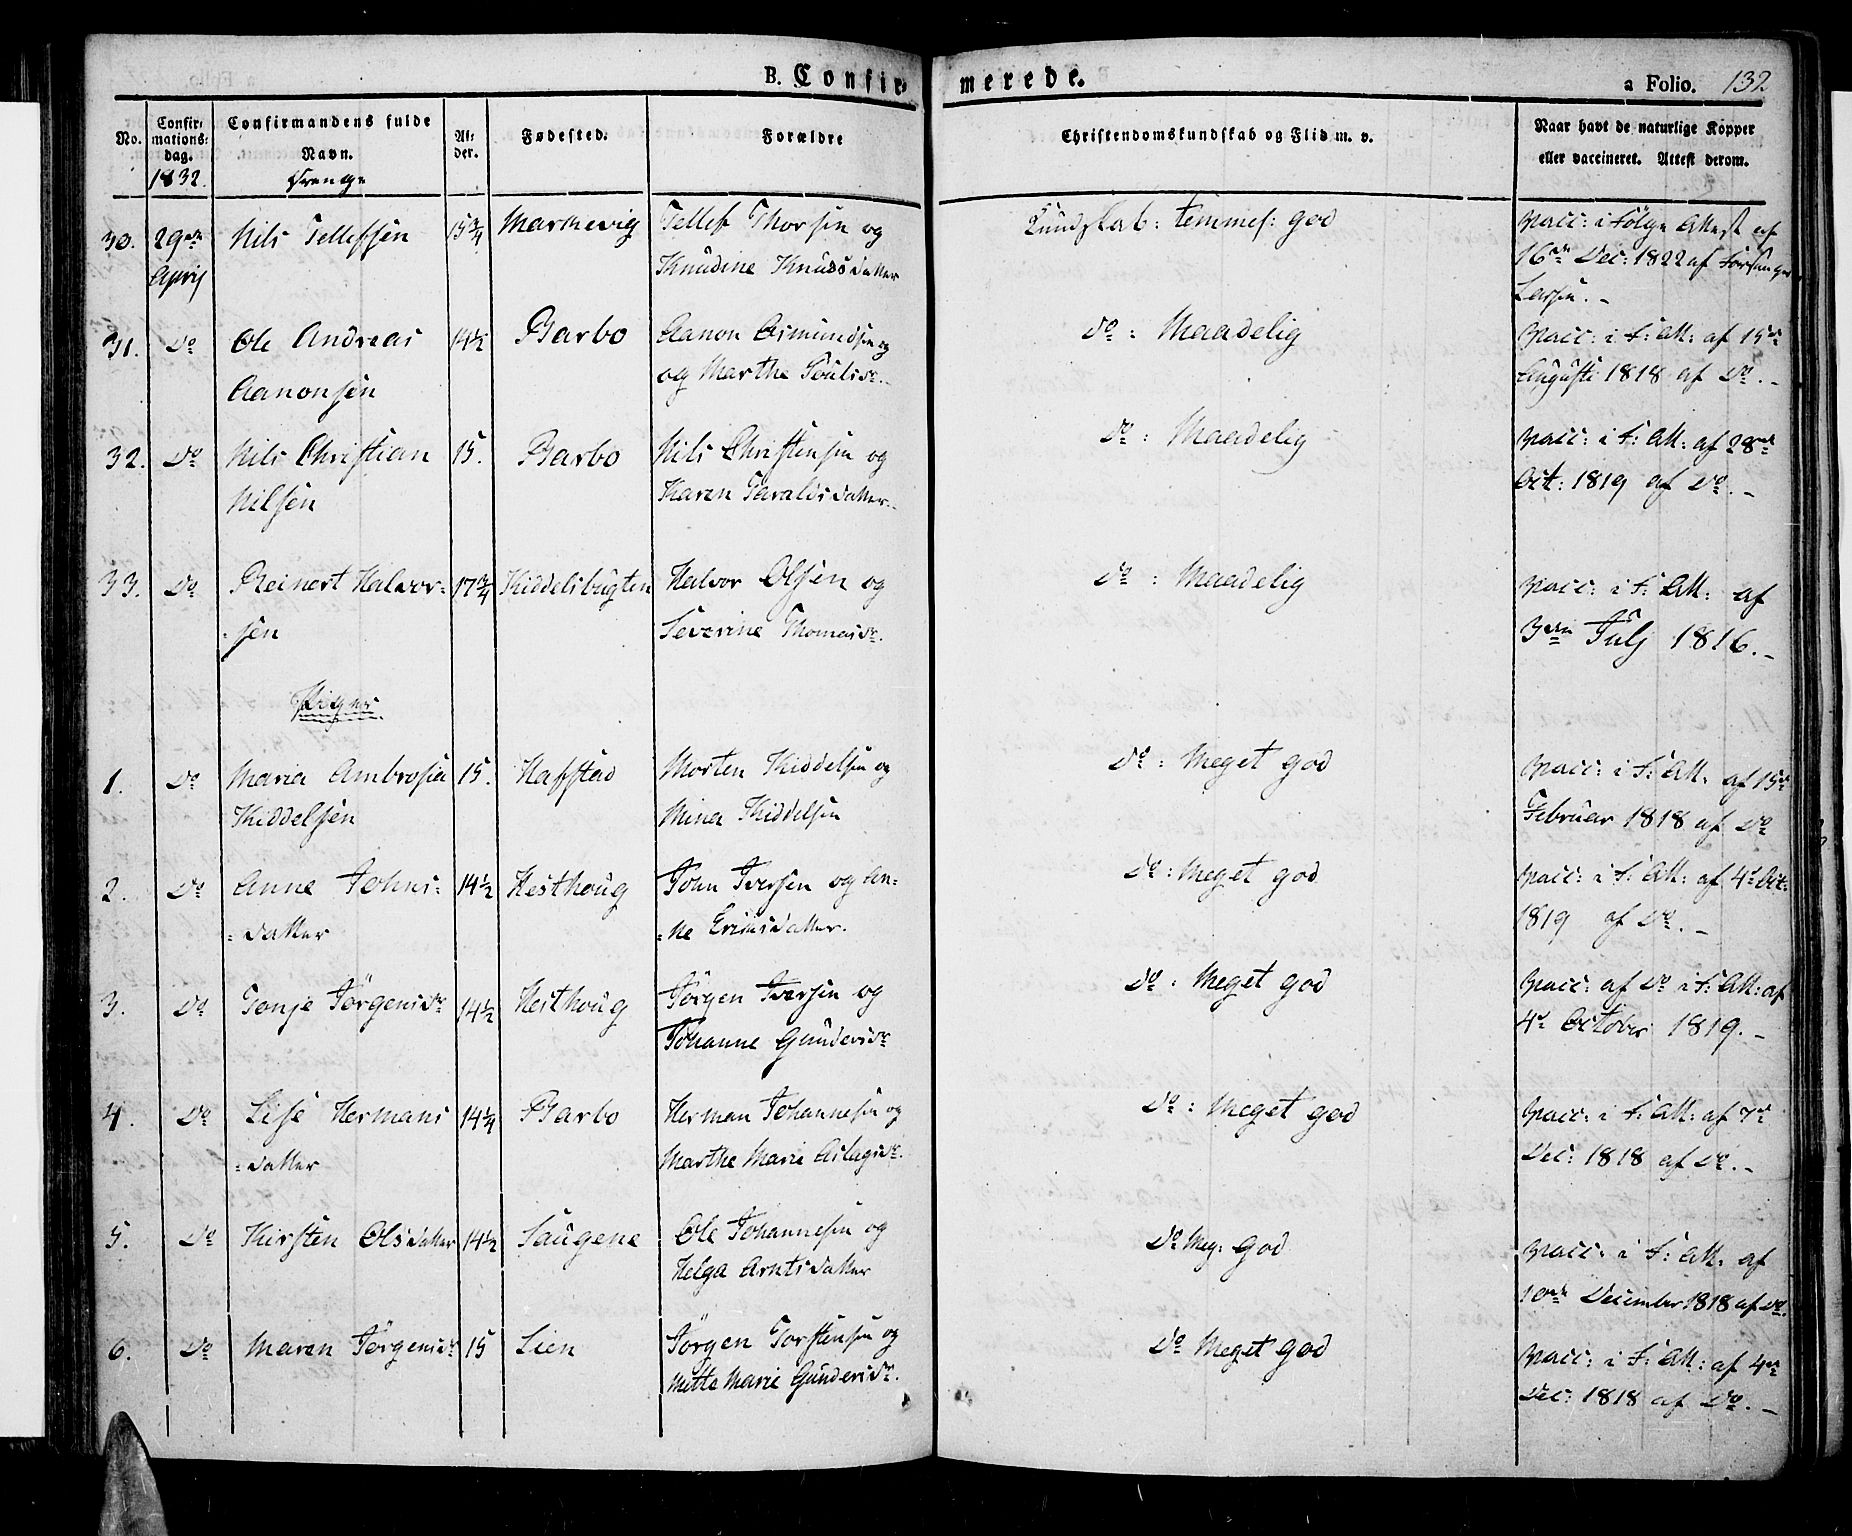 B. Confir- merede. a Folio. 132
No.
Confir-
mations-
dag.
1832.
Confirmandens fulde
Navn.
Drenge
Al-
der.
Fødested.
Forældre
Christendomskundskab og Flid m. v.
Naar havt de naturlige Kopper
eller vaccineret. Attest derom.
30. 29de Nils Tellefsen 15 3/4 Markevig Tellef Thorsen og Kundskab: temmel: god Vacc: i Følge Attest af
April Knudine Knudsdatter 16de Dec: 1822 af Forsanger
Larsen. -
31. Do Ole Andreas 14 1/2 Barbo Aanon Osmundsen og Do: Maadelig Vacc: i F: Att: af 15de
Aanonsen og Marthe Poulsdr. Augusti 1818 af Do. -
32. Do Nils Christian 15. Barbo Nils Christensen og Do: Maadelig Vacc: i F: Att: af 28de
Nilsen Karen Taraldsdatter. Oct: 1819 af Do. -
33. Do Reinert Halvor- 17 3/4 Kiddelsbugten Halvor Olsen og Do: Maadelig Vacc: i F: Att: af
-sen Severine Thomasdr. 3die Julj 1816. -
Piger
1. Do Maria Ambrosia 15. Hafstad Morten Kiddelsen og Do: Meget god Vacc: i F: Att: af 15de
Kiddelsen Mina Kiddelsen Februar 1818 af Do
2. Do Anne Johns- 14 1/2 Hesthoug John Iversen og An- Do: Meget god Vacc: i F: Att: af 4de Oct:
=datter =ne Eriksdatter. 1819 af Do. -
3. Do Tonje Jörgensdr 14 1/2 Hesthoug Jörgen Iversen og Do: Meget god Vacc: af Do i F: Att: af
Johanne Gundersdr 4de October 1819. -
4. Do Lise Hermans 14 1/4 Barbo Herman Johannesen og Do: Meget god Vacc: i F: Att: af 7de
=datter Marthe Marie Aslagsdr. Dec: 1818 af Do. -
5. Do Kirsten Olsdatter 14 1/2 Saugene Ole Johannesen og Do Meg: god Vacc: i F: Att: af
Helga Arntsdatter 10de December 1818 af Do.
6. Do Maren Jörgensdr 15 Lien Jörgen Torstensen og Do Meget god Vacc: i F: Att: af 4de
Mette Marie Gundersdr. Dec: 1818 af Do. -